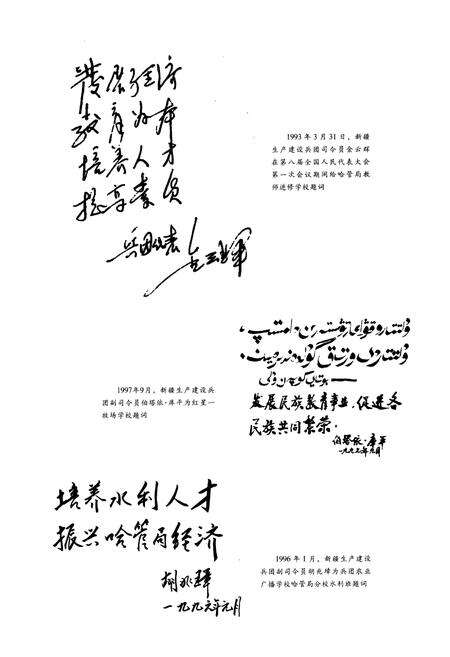 发展经济
教育为本
培养人才
提高素质
兵团代表
1993 年 3 月 31 日，新疆
生产建设兵团司令员金云辉
在第八届全国人民代表大会
第一次会议期间给哈管局教
师进修学校题词
发展民族教育事业，促进各
民族共同繁荣。
伯塔依·库平
1997年9月，新疆生产建设兵
团副司令员伯塔依·库平为红星一
牧场学校题词
培养水利人才
振兴哈管局经济
胡兆璋
一九九六年元月
1996 年 1 月，新疆生产建设
兵团副司令员胡兆璋为兵团农业
广播学校哈管局分校水利班题词